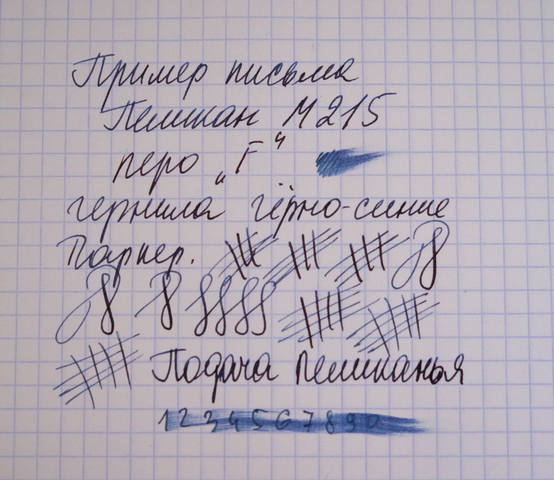 Пример письма
Пеликан M215
перо „F“
чернила чёрно-синие
Паркер.
Подача Пеликанья
1234567890